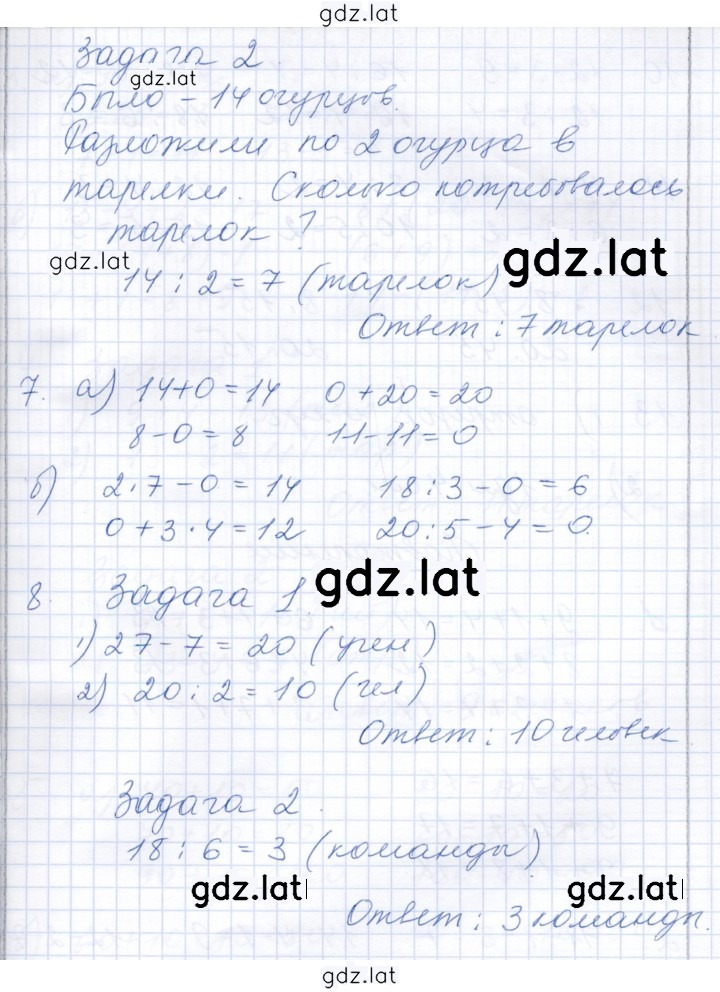 gdz.lat
Задача 2.
gdz.lat
Было – 14 огурцов.
Разложили по 2 огурца в
тарелки. Сколько потребовалось
тарелок?
gdz.lat
gdz.lat
14 : 2 = 7 (тарелок)
Ответ: 7 тарелок
7. а) 14+0=14 0+20=20
8-0=8 11-11=0
б) 2·7-0=14 18:3-0=6
0+3·4=12 20:5-4=0.
8. Задача 1.
gdz.lat
1) 27-7=20 (учен)
2) 20:2=10 (чел)
Ответ: 10 человек
Задача 2.
18:6=3 (команды)
gdz.lat
gdz.lat
Ответ: 3 команды.
gdz.lat